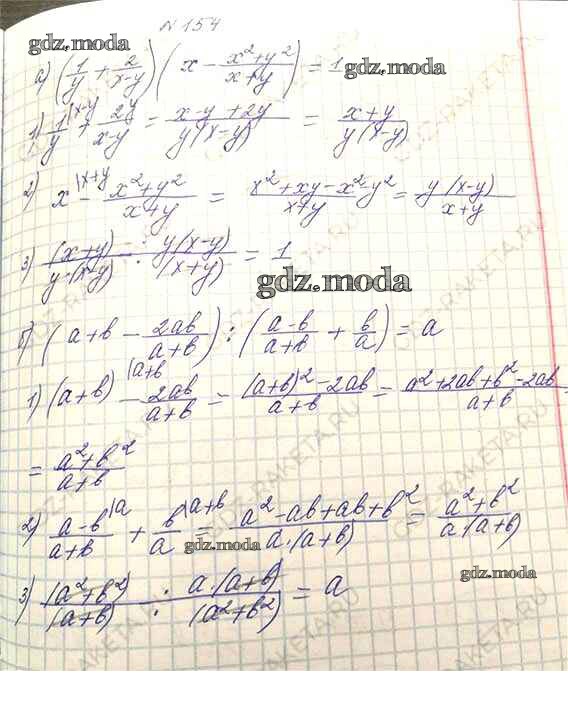 № 154
gdz.moda
а) (1/y + 2/(x-y)) (x - (x²+y²)/(x+y)) = 1
1) 1/y |x-y + 2y/(x-y) = (x-y+2y)/(y(x-y)) = (x+y)/(y(x-y))
gdz.moda
2) x |x+y - (x²+y²)/(x+y) = (x²+xy-x²-y²)/(x+y) = y(x-y)/(x+y)
3) (x+y)/(y·(x-y)) : y(x-y)/(x+y) = 1
gdz.moda
б) (a+b - 2ab/(a+b)) : ((a-b)/(a+b) + b/a) = a
1) (a+b) |a+b - 2ab/(a+b) = ((a+b)²-2ab)/(a+b) = (a²+2ab+b²-2ab)/(a+b) =
= (a²+b²)/(a+b)
2) (a-b)/(a+b) |a + b/a |a+b = (a²-ab+ab+b²)/(a·(a+b)) = (a²+b²)/(a·(a+b))
gdz.moda
gdz.moda
3) (a²+b²)/(a+b) : a·(a+b)/(a²+b²) = a
GDZ-RAKETA.RU